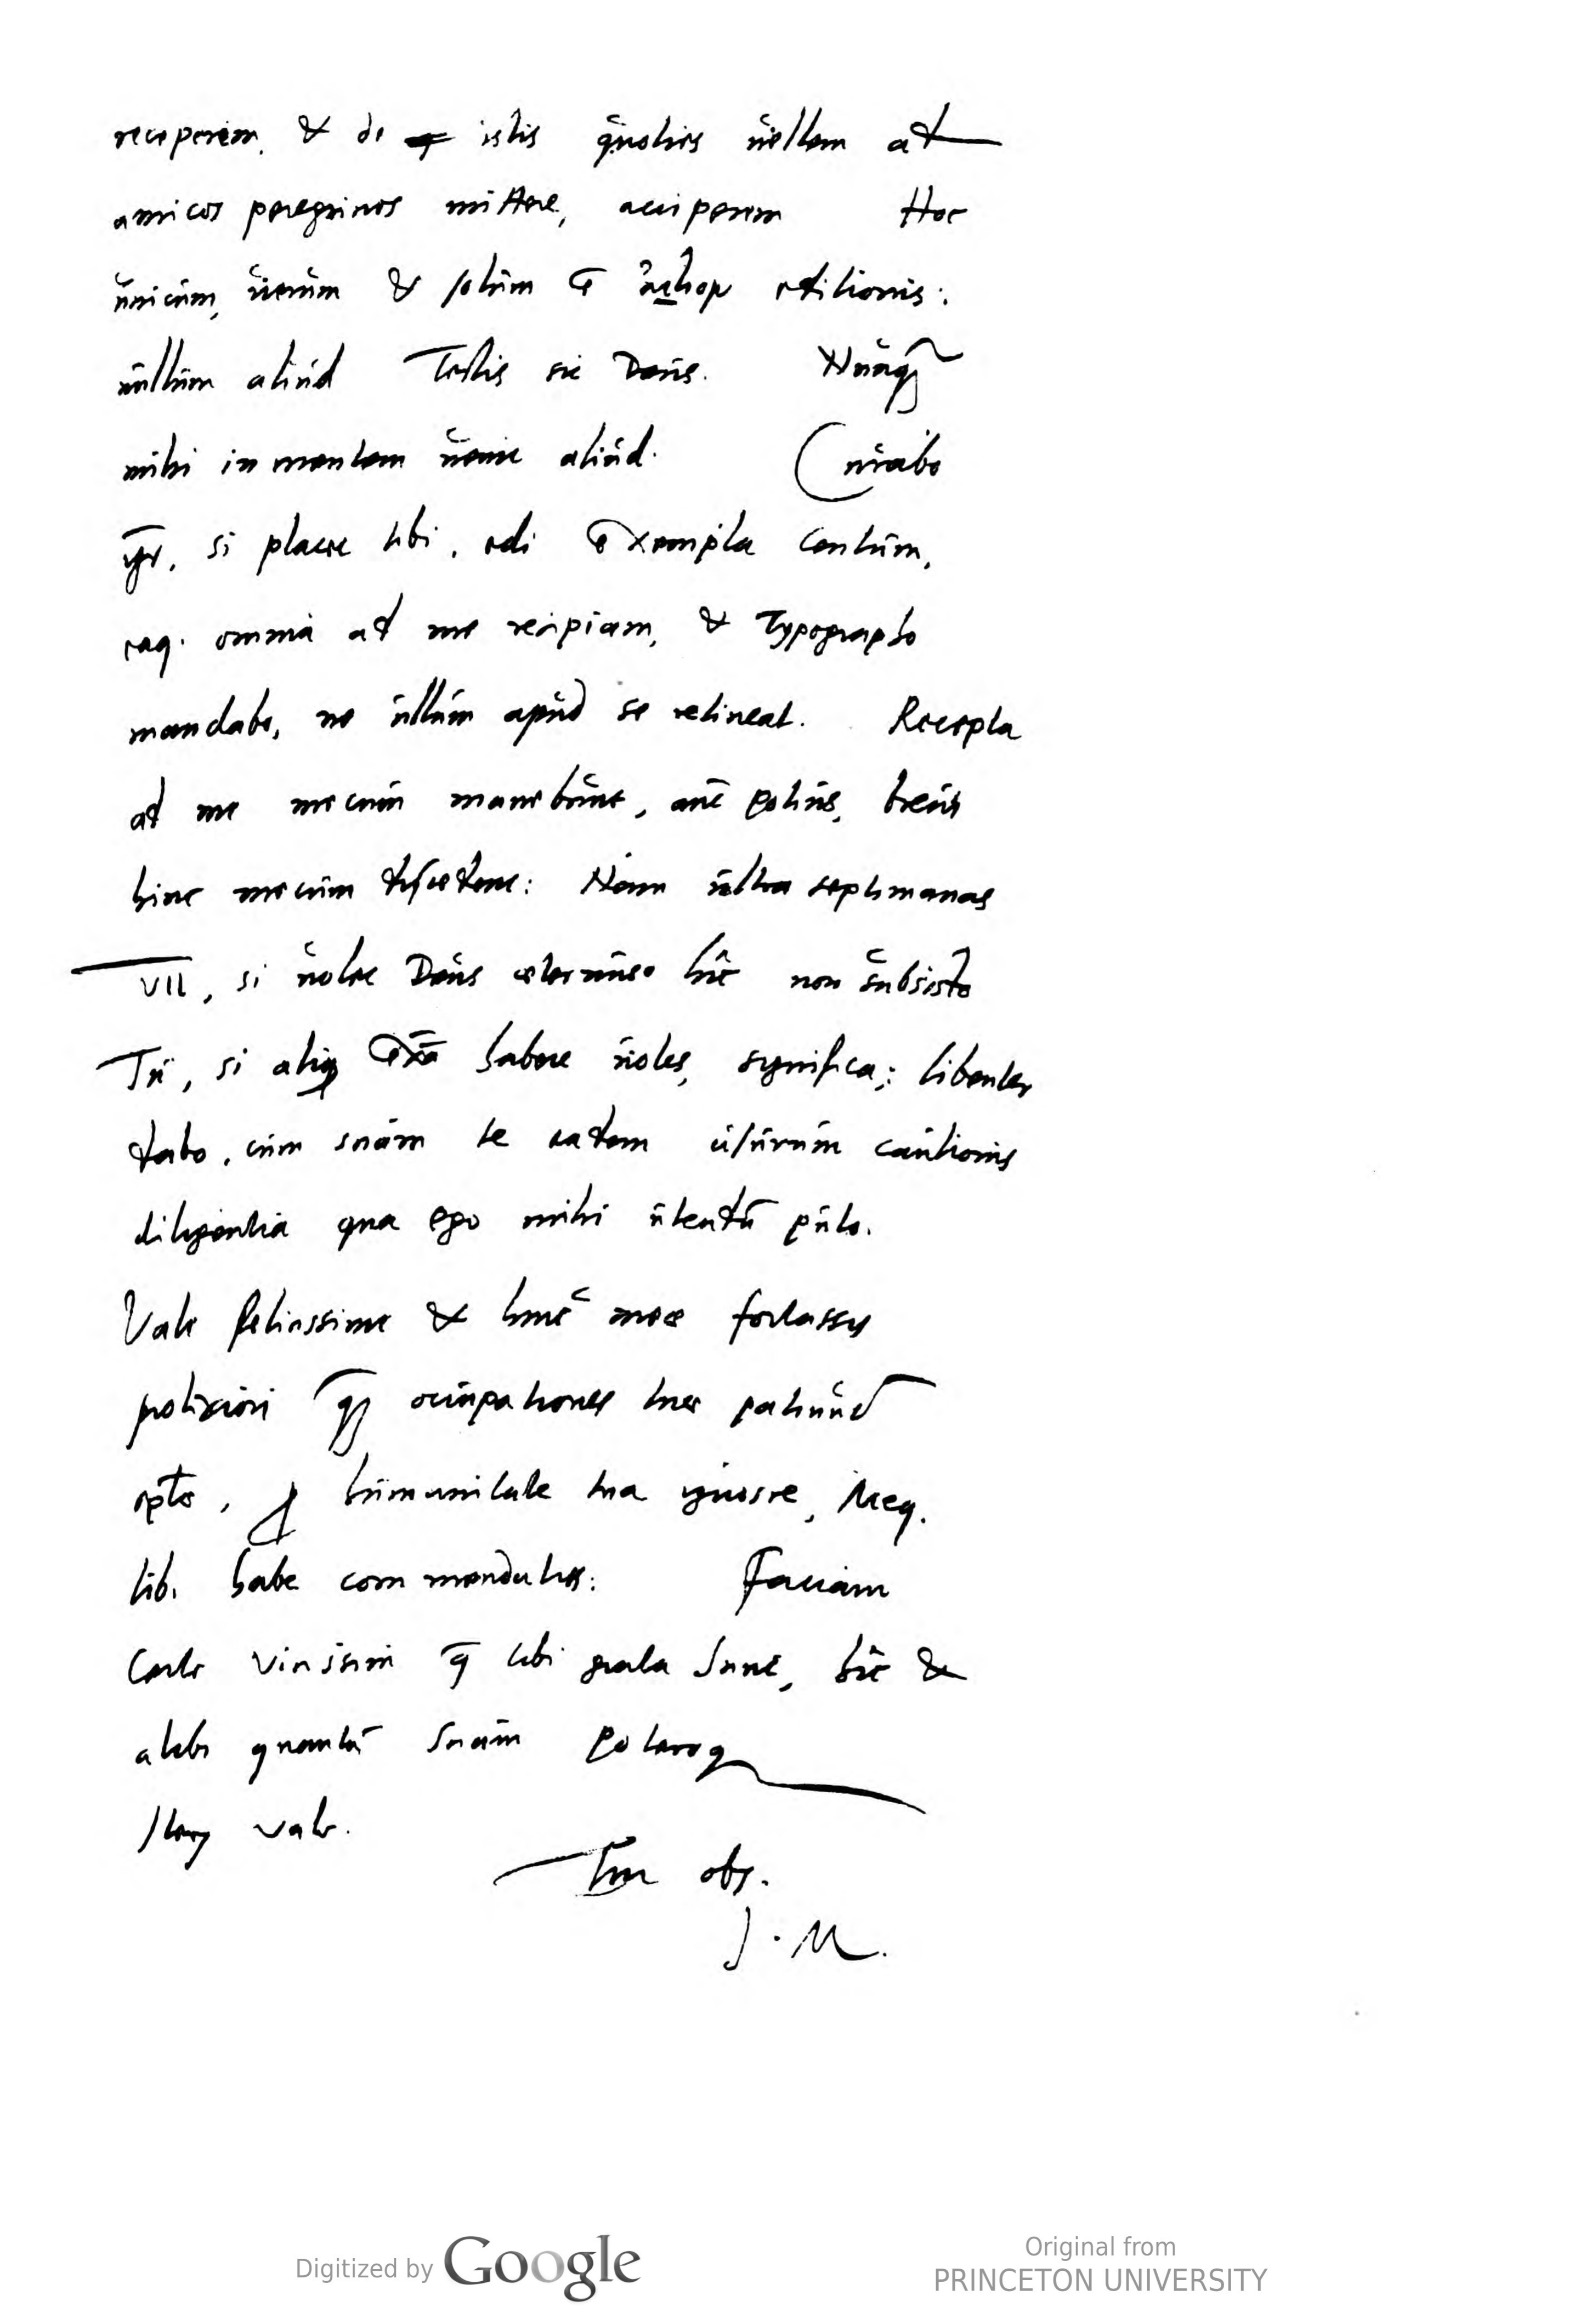 reciperem, & de istis quoties uellem ad
amicos peregrinos mittere, acciperem Hoc
unicum, uerum & solum ē αἴτιον editionis:
nullum aliud Testis sit Deus. Nūaq̃
mihi in mentem uenit aliud. Curabo
igr, si placet tibi, edi Exempla centum,
eaq. omnia ad me recipiam, & Typographo
mandabo, ne ullum apud se retineat. Recepta
ad me mecum manebunt, aut potius, breui
hinc mecum discedent: Nam ultra septimanas
VII, si uolet Deus aeternus, hic non subsisto
Tu, si aliq Exa habere uoles, significa; libenter
dabo, cum sciam te eadem usurum cautionis
diligentia qua ego mihi utendū puto.
Vale felicissime & hinc meae
prolixiori q̃ occupationes tuae patiunt̃
epłae, p humanitate tua ignosce, Meq.
tibi habe commendatiss: Faciam
Certe vicissim q̄ tibi grata sunt, hic &
alibi quantū sciam poteroq
Iterū vale.
Tui obs.
J. M.
Digitized by Google
Original from
PRINCETON UNIVERSITY